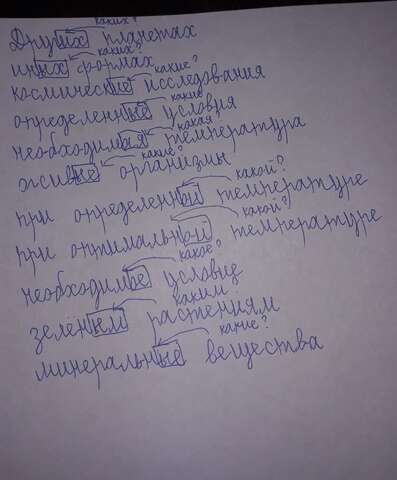 каких?
Других планетах
каких?
иных формах
какие?
космические исследования
какие
определенные условия
какая?
необходимая температура
какие?
живые организмы
какой?
при определенной температуре
какой?
при оптимальной температуре
какое?
необходимое условие
каким?
зеленым растениям
какие?
минеральные вещества